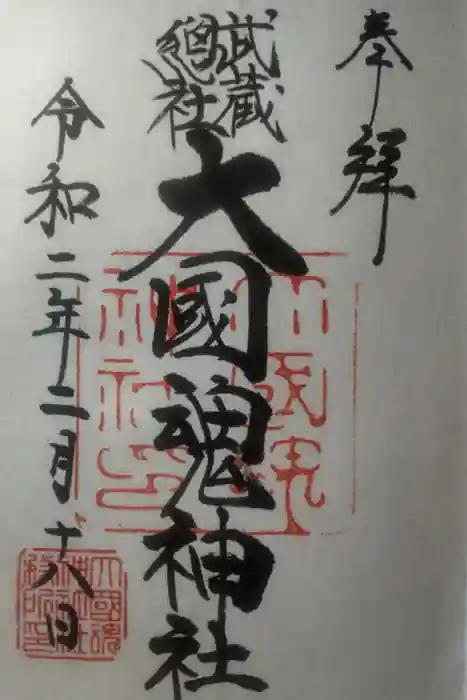 奉拝
武蔵
總社
大國魂神社
令和二年二月十八日